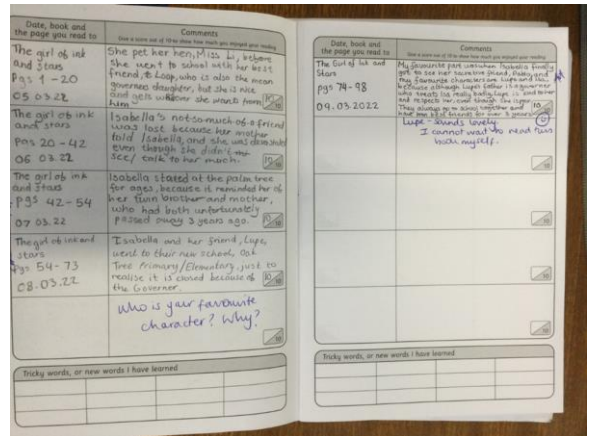 Date, book and
the page you read to
Comments
Give a score out of 10 to show how much you enjoyed your reading
The girl of ink
and Stars
Pgs 1 - 20
05 03.22
She pet her hen, Miss Li, before
she went to school with her best
friend, Loop, who is also the mean
governers daughter, but she is nice
and gets whatever she wants from
him
10/10
The girl of ink
and stars
Pgs 20 - 42
06 03.22
Isabella's not-so-much-of-a friend
was lost because her mother
told Isabella, and she was devastated
even though she didn't
see/ talk to her much.
10/10
The girl of ink
and stars
Pgs 42 - 54
07 03.22
Isabella stated at the palm tree
for ages, because it reminded her of
her twin brother and mother,
who had both unfortunately
passed away 3 years ago.
10/10
The girl of ink and
stars
Pgs 54 - 73
08.03.22
Isabella and her friend, Lupe,
went to their new school, Oak
Tree Primary/Elementary, just to
realise it is closed because of
the Governer.
10/10
who is your favourite
character? Why?
10
Tricky words, or new words I have learned
Date, book and
the page you read to
Comments
Give a score out of 10 to show how much you enjoyed your reading
The Girl of Ink and
Stars
pgs 74 - 98
09.03.2022
My favourite part was when Isabella finally
got to see her secretive friend, Pablo, and
my favourite characters are Lupe and Isabella
because although Lupe's father is a governer
who treats Isa really badly, Lupe is kind to her
and respects her, even though she is poor.
They always go to school together and
have been best friends for over 3 years
10/10
Lupe - sounds lovely.
I cannot wait to read this
book myself.
10
10
10
10
Tricky words, or new words I have learned